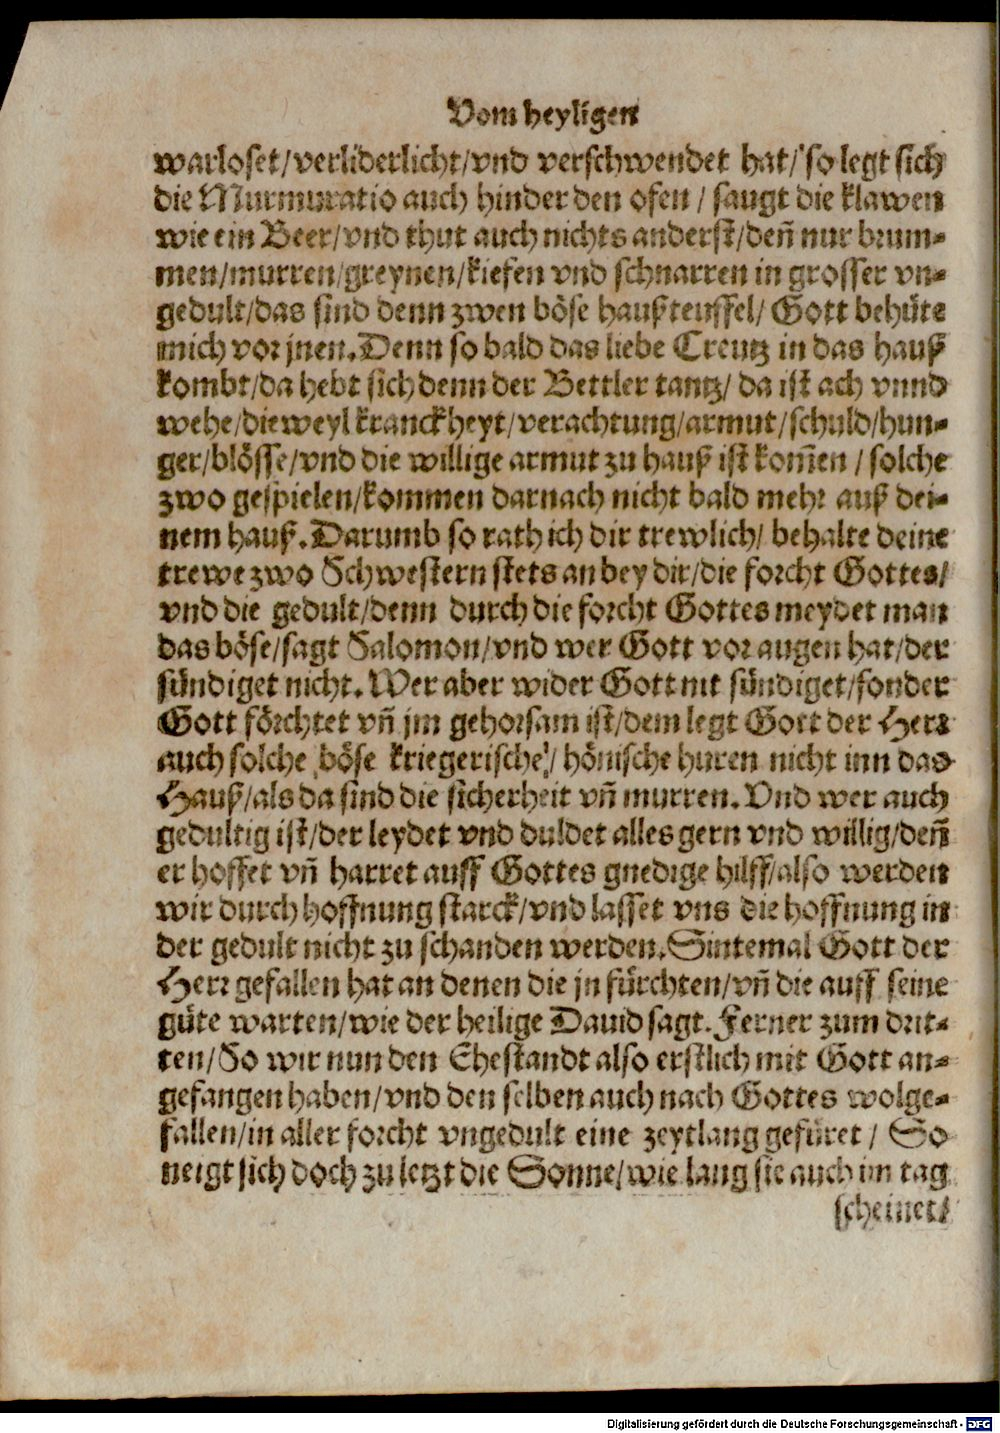 Vom heyligen
warloset/verliderlicht/vnd verschwendet hat/ so legt sich
die Murmuratio auch hinder den ofen / saugt die klawen
wie ein Beer/vnd thut auch nichts anderst/deñ nur brum-
men/murren/greynen/kiefen vnd schnarren in grosser vn-
gedult/das sind denn zwen böse haußteuffel/ Gott behüte
mich vor jnen. Denn so bald das liebe Creutz in das hauß
kombt/da hebt sich denn der Bettler tantz/ da ist ach vnnd
wehe/dieweyl kranckheyt/verachtung/armut/schuld/hun-
ger/blösse/vnd die willige armut zu hauß ist kom̃en / solche
zwo gespielen/kommen darnach nicht bald mehr auß dei-
nem hauß. Darumb so rath ich dir trewlich/ behalte deine
trewe zwo Schwestern stets an bey dir/die forcht Gottes/
vnd die gedult/denn durch die forcht Gottes meydet man
das böse/sagt Salomon/vnd wer Gott vor augen hat/der
sündiget nicht. Wer aber wider Gott nit sündiget/sonder
Gott förchtet vñ jm gehorsam ist/dem legt Gott der Herr
auch solche böse kriegerische/ hönische huren nicht inn das
Hauß/als da sind die sicherheit vñ murren. Vnd wer auch
gedultig ist/der leydet vnd duldet alles gern vnd willig/deñ
er hoffet vñ harret auff Gottes gnedige hilff/also werden
wir durch hoffnung starck/vnd lasset vns die hoffnung in
der gedult nicht zu schanden werden. Sintemal Gott der
Herr gefallen hat an denen die jn fürchten/vñ die auff seine
güte warten/wie der heilige Dauid sagt. Ferner zum drit-
ten/So wir nun den Ehestandt also erstlich mit Gott an-
gefangen haben/vnd den selben auch nach Gottes wolge-
fallen/in aller forcht vngedult eine zeytlang gefüret / So
neigt sich doch zu letzt die Sonne/wie lang sie auch im tag
scheinet/
Digitalisierung gefördert durch die Deutsche Forschungsgemeinschaft - DFG